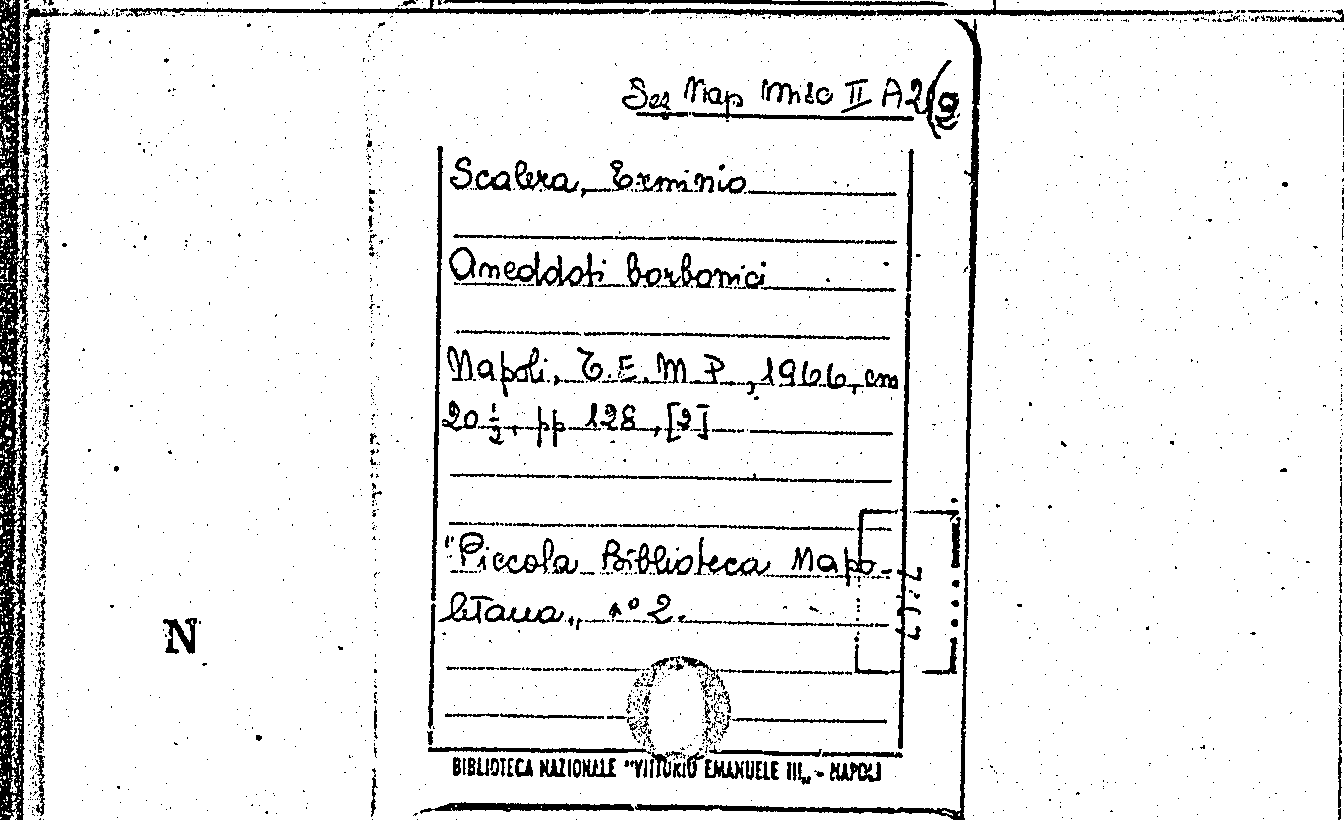 Sez Nap Misc II A 2(9
Scalera, Erminio
Aneddoti borbonici
Napoli, T.E.M.P., 1966, cm
20 ½, pp 128, [2]
"Piccola Biblioteca Napo-
letana„ n° 2.
N
BIBLIOTECA NAZIONALE "VITTORIO EMANUELE III„ - NAPOLI